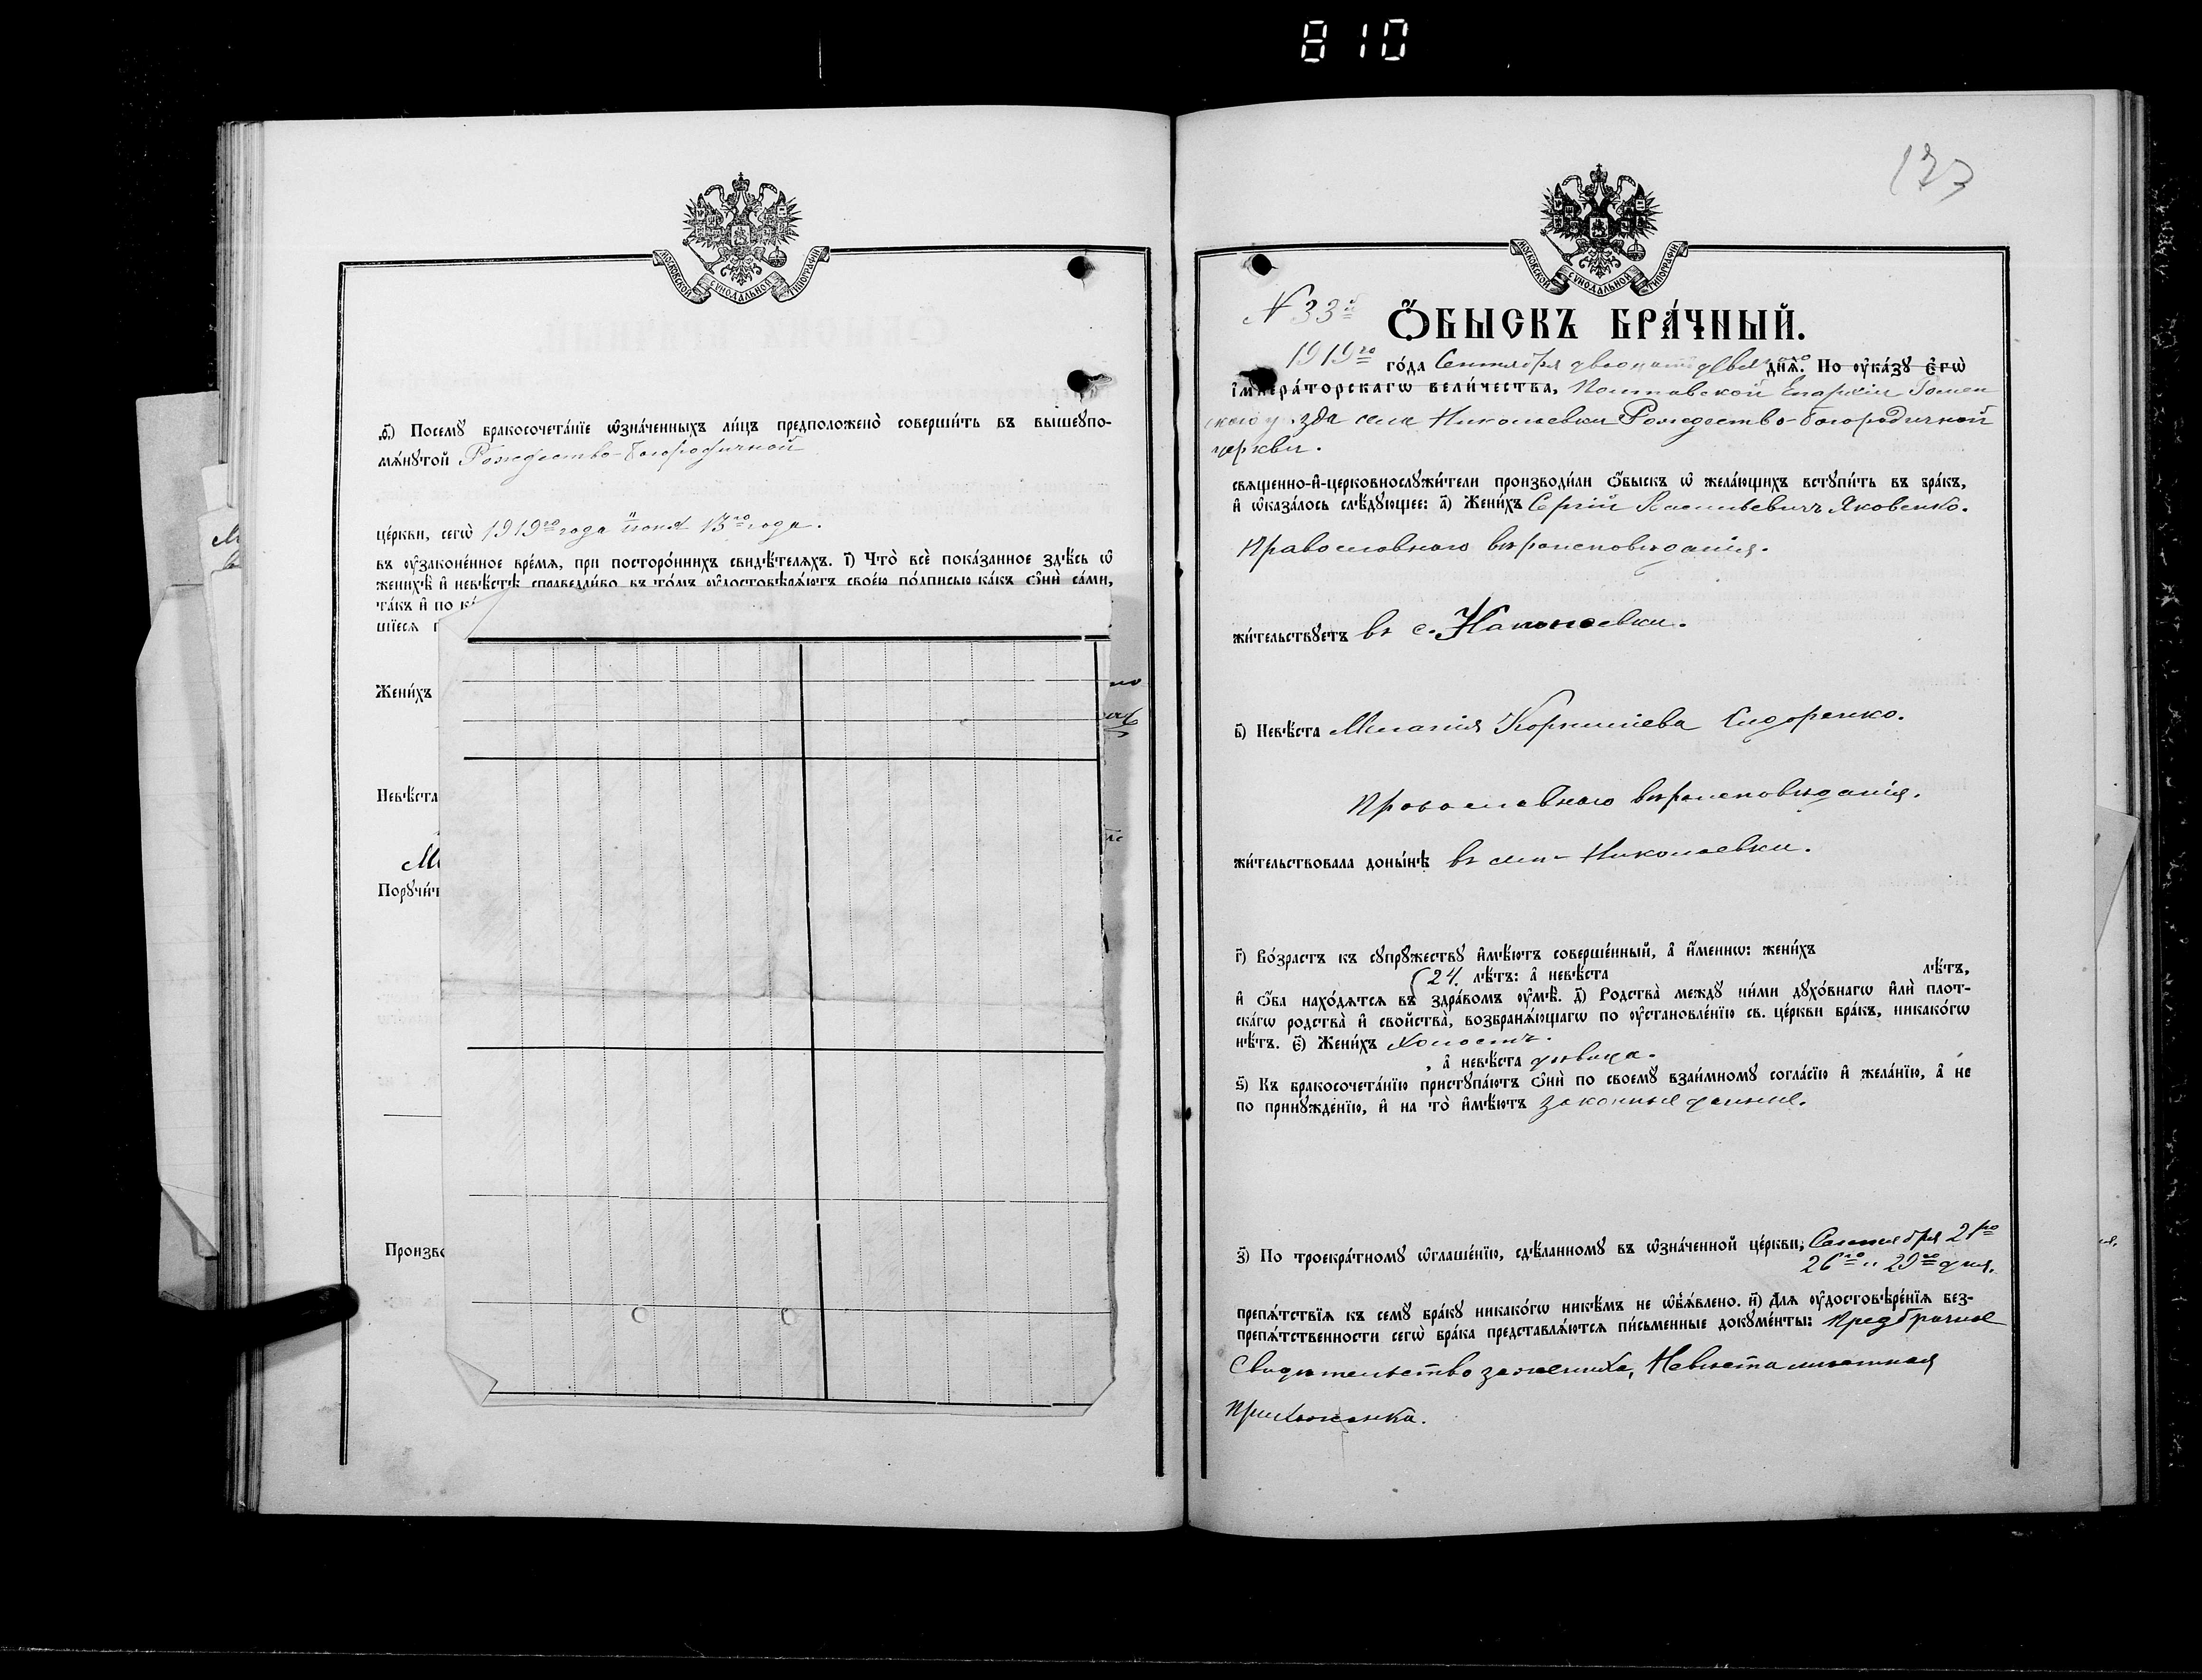 810
133
МОСКОВСКОЙ СѴНОДАЛЬНОЙ ТИПОГРАФІИ
ѳ҃) Посемꙋ бракосочета́нїе ѡ҆зна́ченныхъ ли́цъ предположено̀ соверши́ть въ вышеꙋпо-
мѧ́нꙋтой Рождество-Богородичной
це́ркви, сегѡ̀ 1919го года іюня 13го года.
въ ᲂу҆зако́ненное вре́мѧ, при посторо́ннихъ свидѣ́телѧхъ. і҃) Что̀ всѐ пока́занное здѣ́сь ѡ҆
женихѣ̀ и҆ невѣ́стѣ справедли́во въ то́мъ ᲂу҆достовѣрѧ́ютъ свое́ю по́дписью ка́къ ѻ҆нѝ са́ми,
та́къ и҆ по
шїесѧ
Жени́хъ
Невѣ́ста
Порꙋчи́
Произв
МОСКОВСКОЙ СѴНОДАЛЬНОЙ ТИПОГРАФІИ
N 33й
Ѻ҆БЫСКЪ БРА́ЧНЫЙ.
1919го го́да Сентября двадцать девя днѧ̀. По ᲂу҆ка́зꙋ є҆гѡ̀
і҆мпера́торскагѡ вели́чества, Полтавской Епархіи Ромен
скаго уезда села Николаевки Рождество-Богородичной
церкви.
свѧщенно-и҆-церковнослꙋжи́тели производи́ли ѻ҆́быскъ ѡ҆ жела́ющихъ встꙋпи́ть въ бра́къ,
и҆ ѡ҆каза́лось слѣ́дꙋющее: а҃) Жени́хъ Сергій Васильевичъ Яковенко.
Православнаго вѣроисповѣданія.
жи́тельствꙋетъ въ с.
в҃) Невѣ́ста Меланія Корниліева Сидоренко.
Православнаго вѣроисповѣданія.
жи́тельствовала доны́нѣ въ селѣ Николаевки.
г҃) Во́зрастъ къ сꙋпрꙋжествꙋ и҆мѣ́ютъ соверше́нный, а҆ и҆́меннѡ: жени́хъ
24. лѣ́тъ: а҆ невѣ́ста лѣ́тъ,
и҆ ѻ҆́ба нахо́дѧтсѧ въ здра́вомъ ᲂу҆мѣ̀. д҃) Родства̀ междꙋ ни́ми дꙋхо́внагѡ и҆лѝ плот-
ска́гѡ родства̀ и҆ свойства̀, возбранѧ́ющагѡ по ᲂу҆становле́нїю св. це́ркви бра́къ, никако́гѡ
нѣ́тъ. є҃) Жени́хъ холостъ.
, а҆ невѣ́ста дѣвица.
ѕ҃) Къ бракосочета́нїю пристꙋпа́ютъ ѻ҆нѝ по своемꙋ̀ взаи́мномꙋ согла́сїю и҆ жела́нїю, а҆ не
по принꙋжде́нїю, и҆ на то̀ и҆мѣ́ютъ законныя данныя.
з҃) По троекра́тномꙋ ѡ҆глаше́нїю, сдѣ́ланномꙋ въ ѡ҆зна́ченной це́ркви, Сентября 21го
26го и 29го дня.
препѧ́тствїѧ къ семꙋ̀ бра́кꙋ никако́гѡ никѣ́мъ не ѡ҆б̾ѧ́влено. и҃) Длѧ ᲂу҆достовѣре́нїѧ без-
препѧ́тственности сегѡ̀ бра́ка представлѧ́ютсѧ пи́сьменные докꙋме́нты: Предбрачное
Свидѣтельство за жениха, Невѣста мѣстная
Прихожанка.